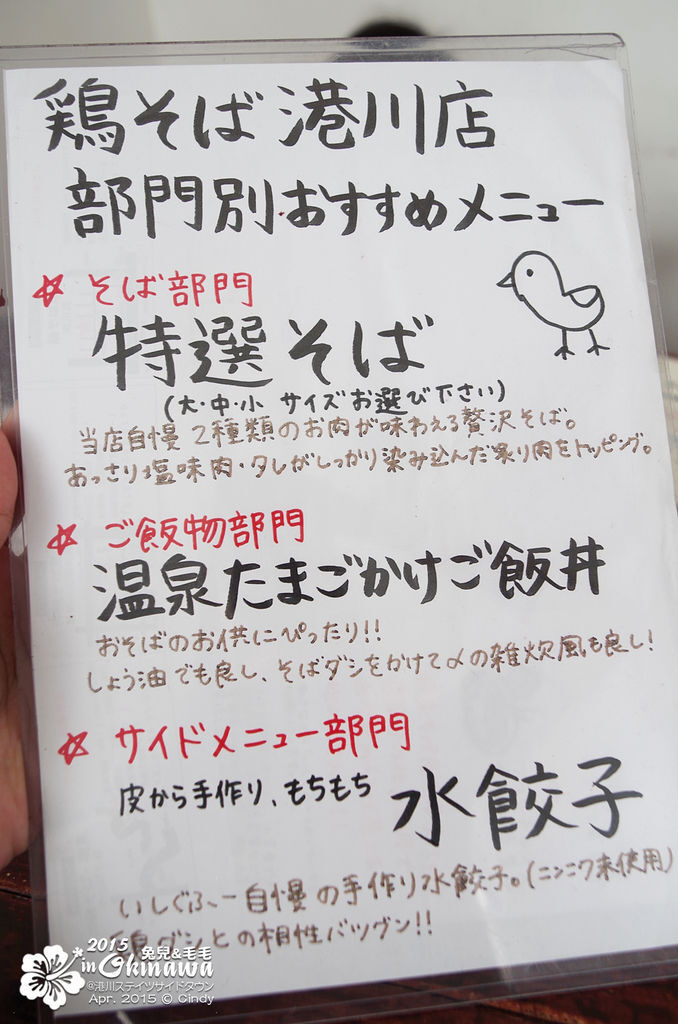 鶏そば 港川店
部門別おすすめメニュー
☆ そば部門
特選そば
(大・中・小 サイズお選び下さい)
当店自慢 2種類のお肉が味わえる贅沢そば。
あっさり塩味肉・タレがしっかり染み込んだ炙り肉をトッピング。
☆ ご飯物部門
温泉たまごかけご飯丼
おそばのお供にぴったり!!
しょう油でも良し、そばダシをかけて〆の雑炊風も良し!
☆ サイドメニュー部門
皮から手作り、もちもち
水餃子
いしぐふー自慢の手作り水餃子。(ニンニク未使用)
鶏ダシとの相性バツグン!!
2015 兔兒&毛毛
in Okinawa
@港川ステイツサイドタウン
Apr. 2015 © Cindy